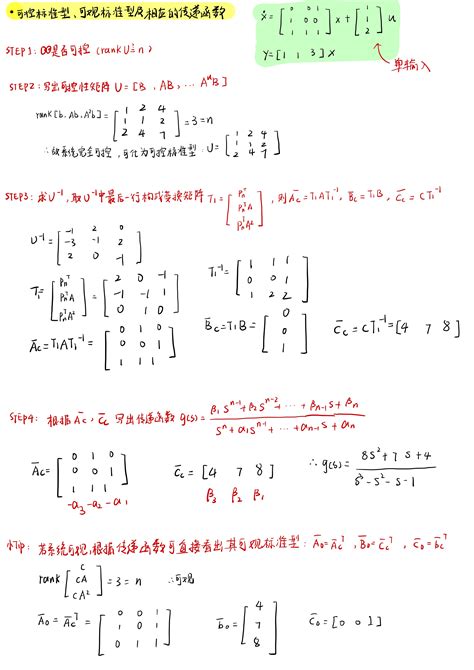 • 可控标准型、可观标准型及相应的传递函数
x + [1 1 2] u
y=[1 1 3]x
单输入
STEP1: 是否可控 (rankU=n)
STEP2: 写出可控性矩阵 U=[B, AB, ... AⁿB]
rank[b, Ab, A²b]=[1 2 4
1 1 2
2 4 7]=3=n
∴故系统完全可控，可化为可控标准型: U=[1 2 4
1 1 2
2 4 7]
STEP3: 求U⁻¹, 取U⁻¹中最后一行构成变换矩阵 T₁=[Pnᵀ PnᵀA PnᵀA²], 则Āc=T₁AT₁⁻¹, B̄c=T₁B, C̄c=CT₁⁻¹
U⁻¹=[-1 2 0
-3 -1 2
2 0 -1]
T₁=[Pnᵀ PnᵀA PnᵀA²]=[2 0 -1
-1 -1 1
0 1 0]
T₁⁻¹=[1 1 1
0 0 1
1 2 2]
Āc=T₁AT₁⁻¹=[0 1 0
0 0 1
1 1 1]
B̄c=T₁B=[0 0 1]
C̄c=CT₁⁻¹=[4 7 8]
STEP4: 根据Āc, C̄c 写出传递函数 g(s)=(β₁sⁿ⁻¹+β₂sⁿ⁻²+…+βn-1s+βn)/(sⁿ+α₁sⁿ⁻¹+…+αn-1s+αn)
Āc=[0 1 0
0 0 1
1 1 1]
-α₃ -α₂ -α₁
C̄c=[4 7 8]
β₃ β₂ β₁
∴ g(s)=(8s²+7s+4)/(s³-s²-s-1)
若系统可观,根据传递函数可直接看出其可观标准型: Āo=Ācᵀ, B̄o=C̄cᵀ, C̄o=b̄cᵀ
rank[C CA CA²]=3=n ∴可观
Āo=Ācᵀ=[0 0 1
1 0 1
0 1 1]
b̄o=[4 7 8]
C̄o=[0 0 1]